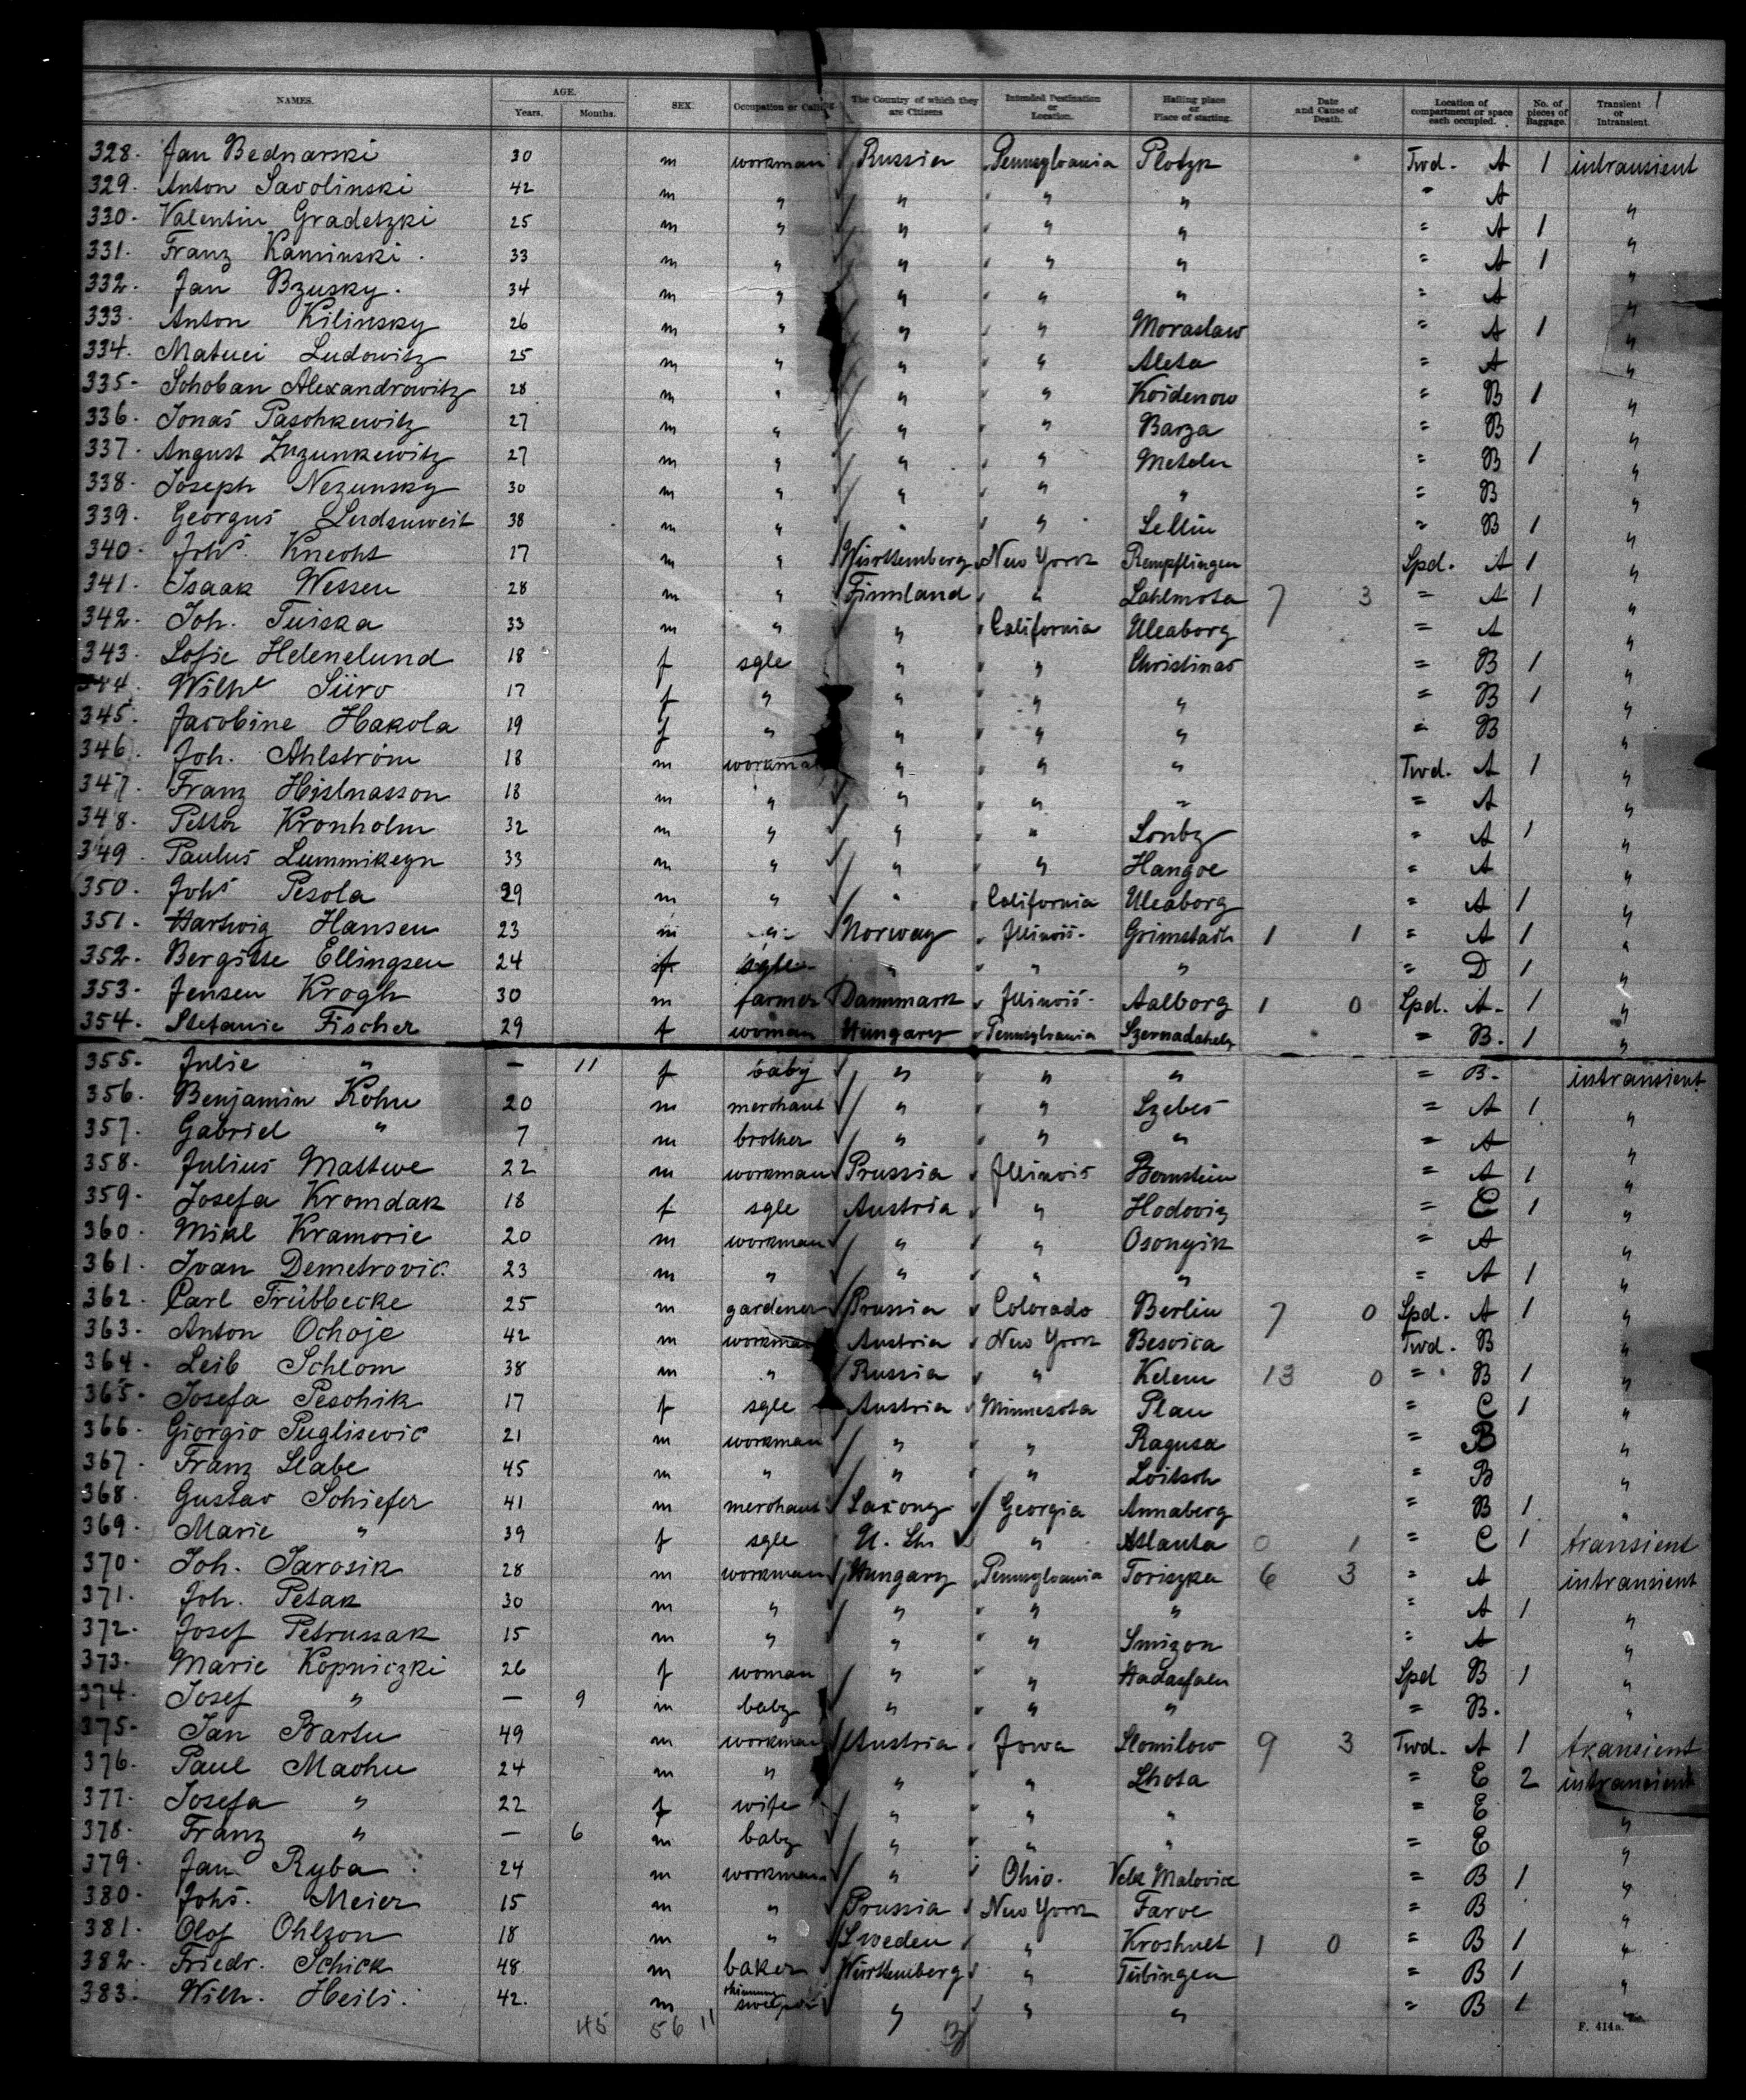 NAMES. AGE. Years. Months. SEX. Occupation or Calling The Country of which they are Citizens Intended Destination or Location. Hailing place or Place of starting. Date and Cause of Death. Location of compartment or space each occupied. No. of pieces of Baggage. Transient or Intransient.
328. Jan Bednarski 30 m workman Russia Pennsylvania Plotzk Twd. A 1 intransient
329. Anton Savolinski 42 m " " " " " A "
330. Valentin Gradetzki 25 m " " " " = A 1 "
331. Franz Kaminski. 33 m " " " " = A 1 "
332. Jan Bzusky. 34 m " " " " = A "
333. Anton Kilinsky 26 m " " " Moraslaw = A 1 "
334. Matuei Ludowitz 25 m " " " Aleta = A "
335. Schoban Alexandrowitz 28 m " " " Koidenow = B 1 "
336. Jonas Paschkewitz 27 m " " " Barza = B "
337. August Zuzunkewitz 27 m " " " Meteln = B 1 "
338. Joseph Nezunsky 30 m " " " " = B "
339. Georgus Ludsuweit 38 m " " " Lellin = B 1 "
340. Johs. Knecht 17 m " Württemberg New York Rempflingen Spd. A 1 "
341. Isaak Wessen 28 m " Finnland " Lahlmota 7 3 = A 1 "
342. Joh. Tuiska 33 m " " California Uleaborg = A "
343. Sofie Helenelund 18 f sgle " " Christinas = B 1 "
344. Wilhe Siiro 17 f " " " " = B 1 "
345. Jacobine Hakola 19 f " " " " = B "
346. Joh. Ahlström 18 m workman " " " Twd. A 1 "
347. Franz Hislnasson 18 m " " " " = A "
348. Petter Kronholm 32 m " " " Sonby = A 1 "
349. Paulus Lummikeyn 33 m " " " Hangoe = A "
350. Johs Pesola 29 m " " California Uleaborg = A 1 "
351. Hartwig Hansen 23 m " Norway Illinois. Grimstadt 1 1 = A 1 "
352. Bergitte Ellingsen 24 f sgle " " " = D 1 "
353. Jensen Krogh 30 m farmer Dannmark Illinois. Aalborg 1 0 Spd. A. 1 "
354. Stefanie Fischer 29 f woman Hungary Pennsylvania Szernadahely = B. 1 "
355. Julie " — 11 f baby " " " = B. intransient
356. Benjamin Kohn 20 m merchant " " Szebes = A 1 "
357. Gabriel " 7 m brother " " " = A "
358. Julius Mattwe 22 m workman Prussia Illinois Bernstein = A 1 "
359. Josefa Kromdak 18 f sgle Austria " Hodoviz = C 1 "
360. Mikl Kramoric 20 m workman " " Osonyik = A "
361. Ivan Demetrovic. 23 m " " " " = A 1 "
362. Carl Trübbecke 25 m gardener Prussia Colorado Berlin 7 0 Spd. A 1 "
363. Anton Ochoje 42 m workman Austria New York Besvica Twd. B "
364. Leib Schlom 38 m " Russia " Kelem 13 0 = B 1 "
365. Josefa Peschik 17 f sgle Austria Minnesota Plan = C 1 "
366. Giorgio Puglisevic 21 m workman " " Ragusa = B "
367. Franz Slabe 45 m " " " Loitsch = B "
368. Gustav Schiefer 41 m merchant Saxony Georgia Annaberg = B 1 "
369. Marie " 39 f sgle U. Sts " Atlanta 0 1 = C 1 transient
370. Joh. Jarosik 28 m workman Hungary Pennsylvania Toriszka 6 3 = A intransient
371. Joh. Petak 30 m " " " " = A 1 "
372. Josef Petrussak 15 m " " " Smizon = A "
373. Marie Kopniczki 26 f woman " " Hadasfalu Spd B 1 "
374. Josef " — 9 m baby " " " = B. "
375. Jan Bartu 49 m workman Austria Iowa Slomilow 9 3 Twd. A 1 transient
376. Paul Machu 24 m " " " Lhota = E 2 intransient
377. Josefa " 22 f wife " " " = E "
378. Franz " — 6 m baby " " " = E "
379. Jan Ryba 24 m workman " Ohio. Velk Malovice = B 1 "
380. Johs. Meier 15 m " Prussia New York Farve = B "
381. Olof Ohlson 18 m " Sweden " Kroshult 1 0 = B 1 "
382. Friedr. Schick 48 m baker Württemberg " Tübingen = B 1 "
383. Wilh. Heili. 42. m " " " = B 1 "
45 56 11
F. 414a.